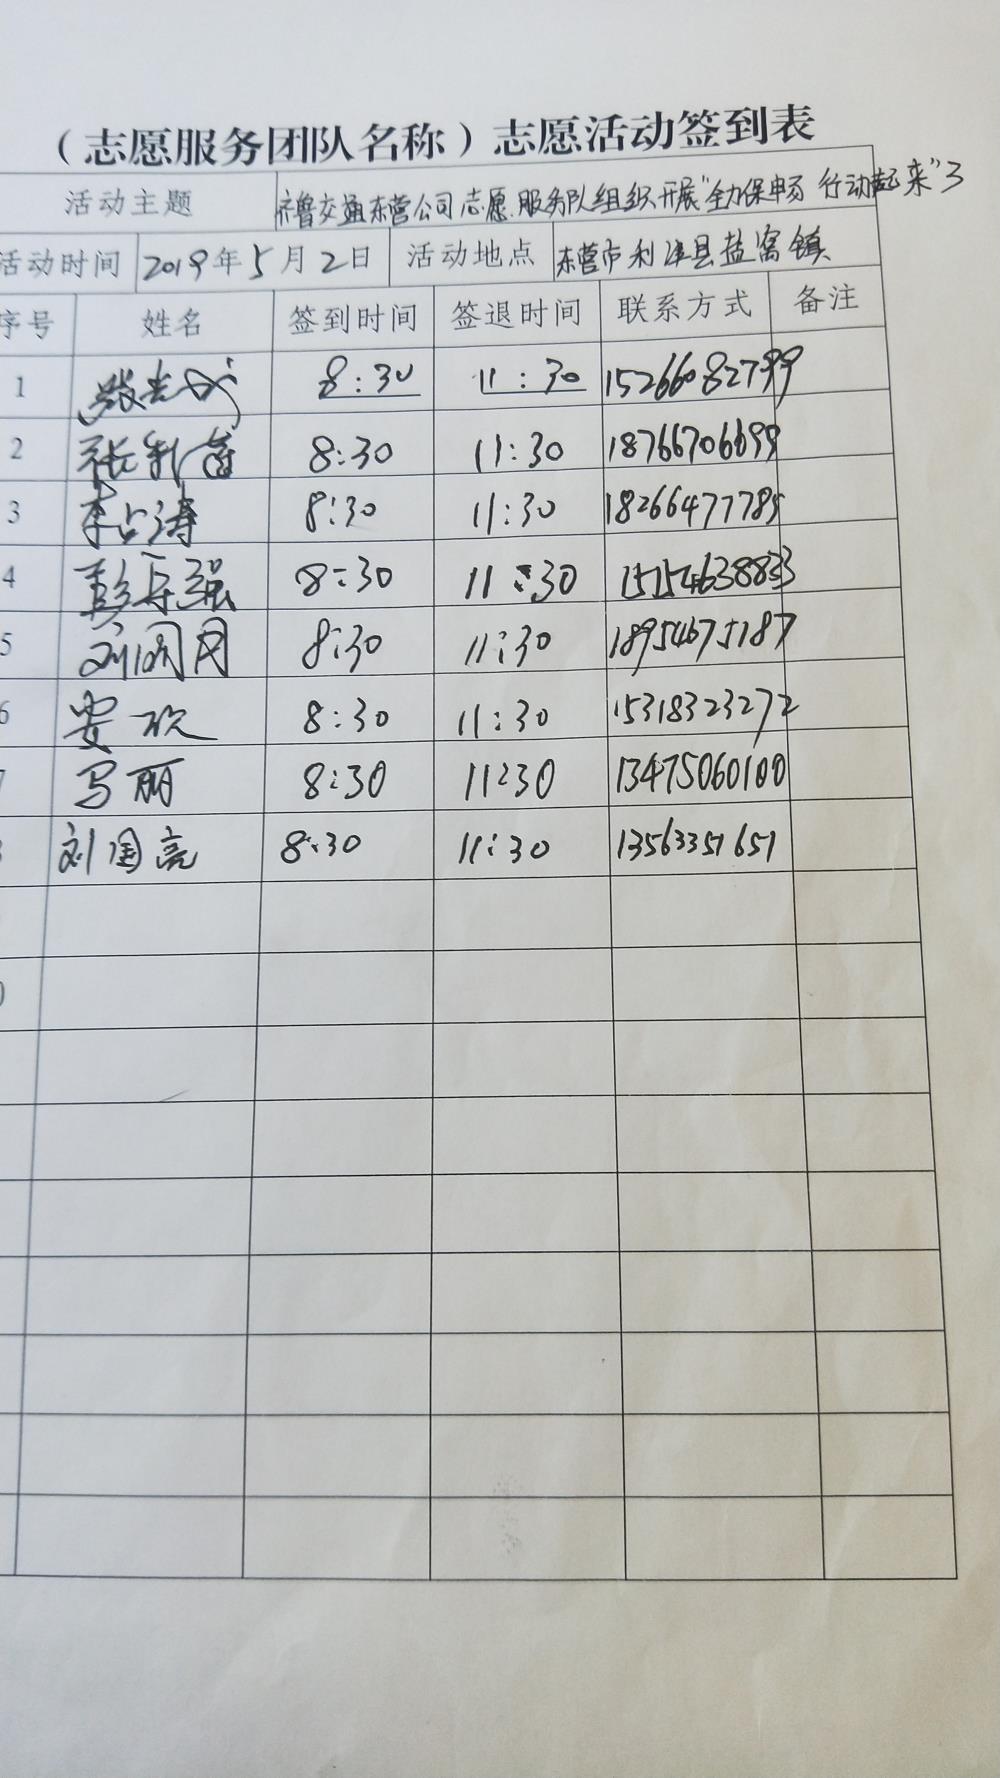 （志愿服务团队名称）志愿活动签到表
活动主题 齐鲁交通东营公司志愿服务队组织开展"全力保畅 行动起来"3
活动时间 2019年5月2日 活动地点 东营市利津县盐窝镇
序号 姓名 签到时间 签退时间 联系方式 备注
1 8:30 11:30 15266082799
2 张 8:30 11:30 18766706699
3 李占涛 8:30 11:30 18266477785
4 彭 强 8:30 11:30 15154638833
5 刘 8:30 11:30 18954675187
6 安 8:30 11:30 15318323272
7 马丽 8:30 11:30 13475060100
刘国亮 8:30 11:30 13563351651
0